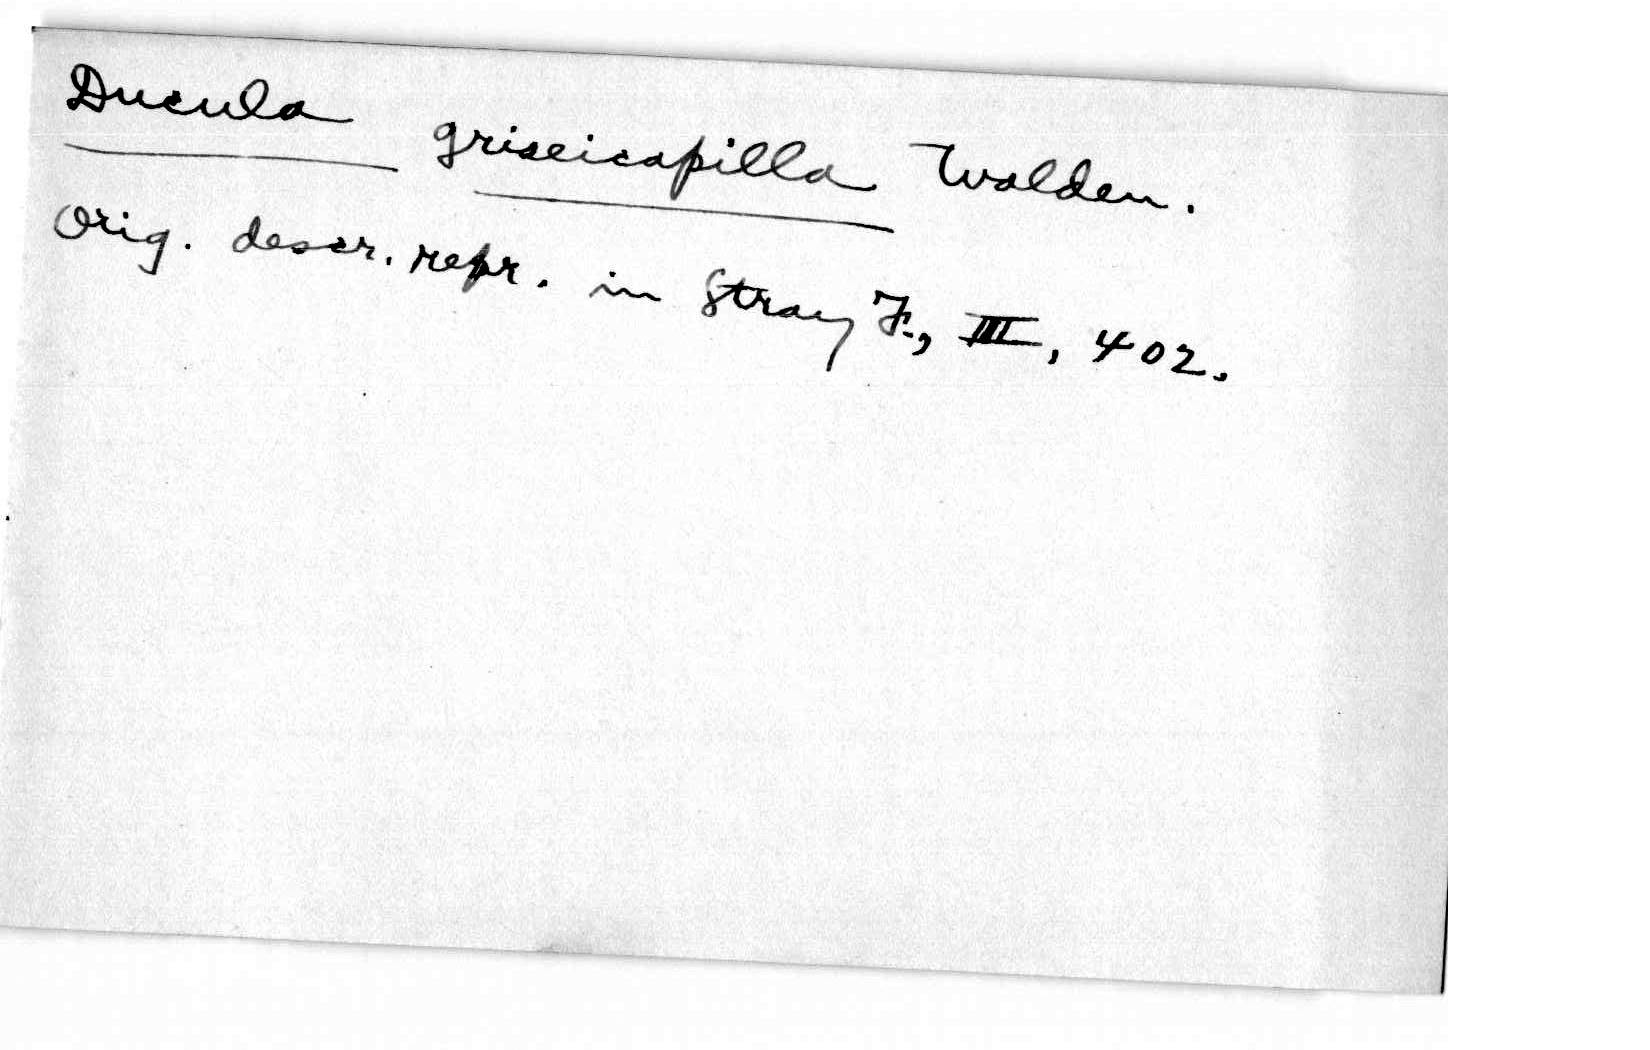 Ducula griseicapilla Walden.
Orig. descr. repr. in Stray F., III, 402.